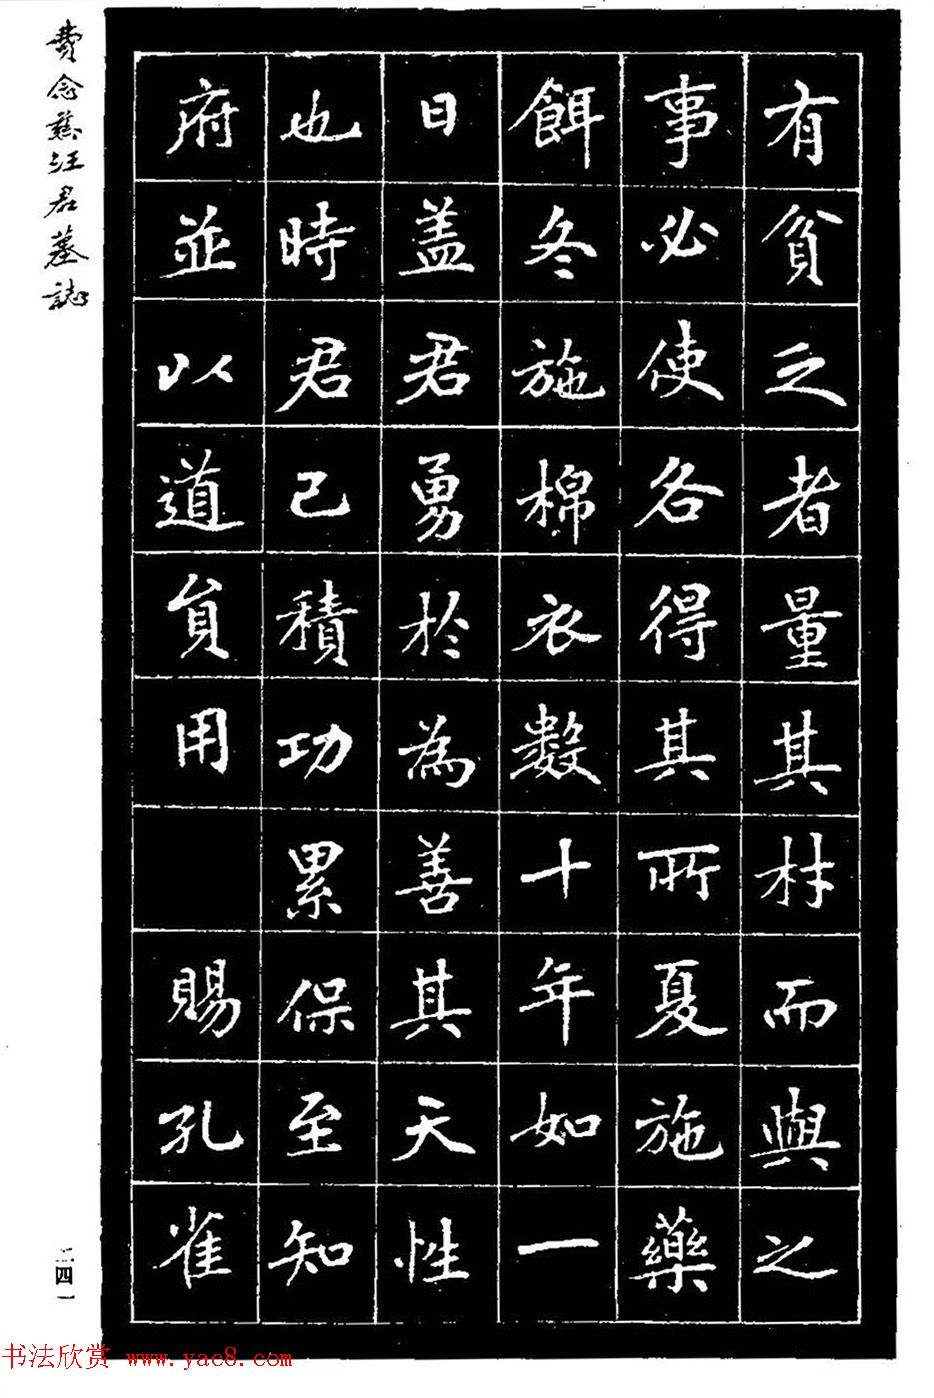 費念慈汪君墓誌
有貧乏者量其材而與之
事必使各得其所夏施藥
餌冬施棉衣數十年如一
日蓋君勇於為善其天性
也時君已積功累保至知
府並以道員用賜孔雀
二四一
书法欣赏 www.yac8.com